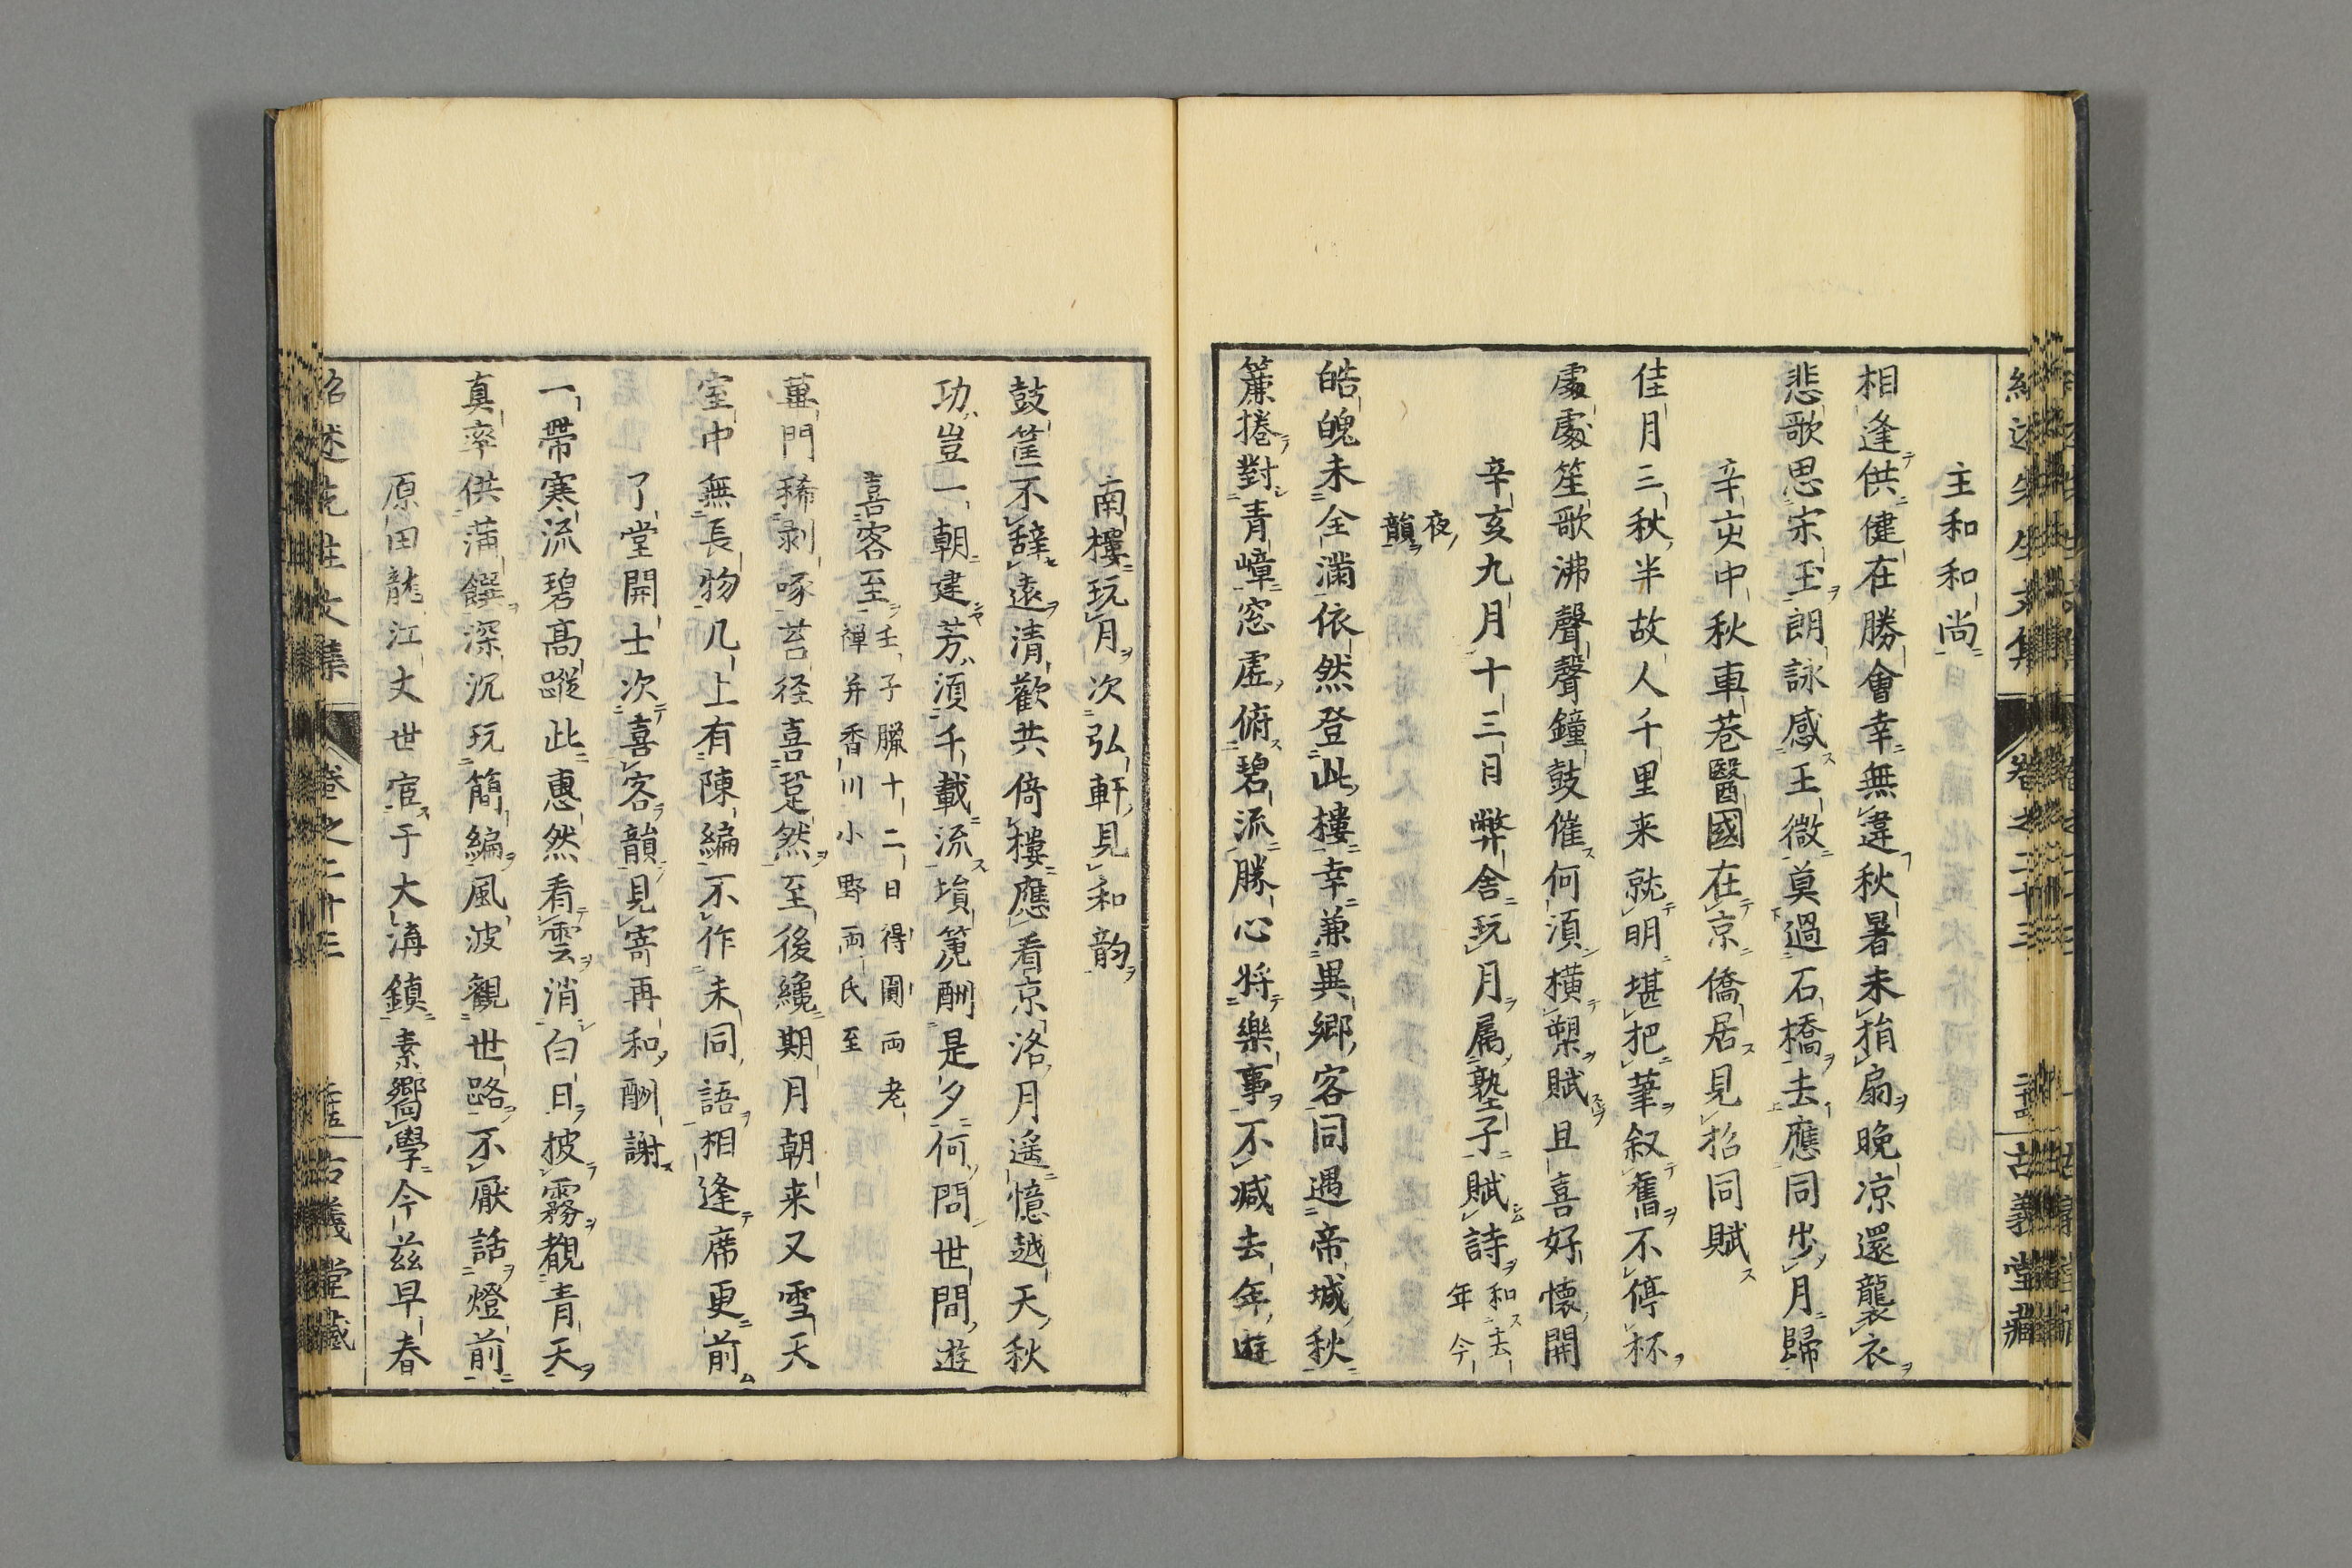 主和和尚
相逢供健在勝會幸無違秋暑未捐扇晚凉還襲衣
悲歌思宋玉朗詠感王微莫過石橋去應同步月歸
辛亥中秋車巷醫國在京僑居見招同賦
佳月三秋半故人千里来就明堪把筆叙舊不停杯
處處笙歌沸聲聲鐘鼓催何須横槊賦且喜好懷開
辛亥九月十三日弊舎玩月属塾子賦詩和去年今
夜韻
皓魄未全滿依然登此樓幸兼異郷客同遇帝城秋
簾捲對青嶂窓虚俯碧流勝心將樂事不減去年遊
南樓玩月次弘軒見和韵
鼓筐不辭遠清歡共倚樓應看京洛月遥憶越天秋
功豈一朝建芳須千載流塤箎酬是夕何問世間遊
喜客至壬子臘十二日得圓両老
禪并香川小野両氏至
蓽門稀剥啄苔径喜跫然至後纔期月朝来又雪天
室中無長物几上有陳編不作未同語相逢席更前
了堂開士次喜客韻見寄再和酬謝
一帶寒流碧高蹤此惠然看雲消白日披霧覩青天
真率供蒲饌深沉玩簡編風波観世路不厭話燈前
原田龍江丈世宦于大溝鎮素嚮學今茲早春
紹述先生文集 卷之二十三 古義堂藏